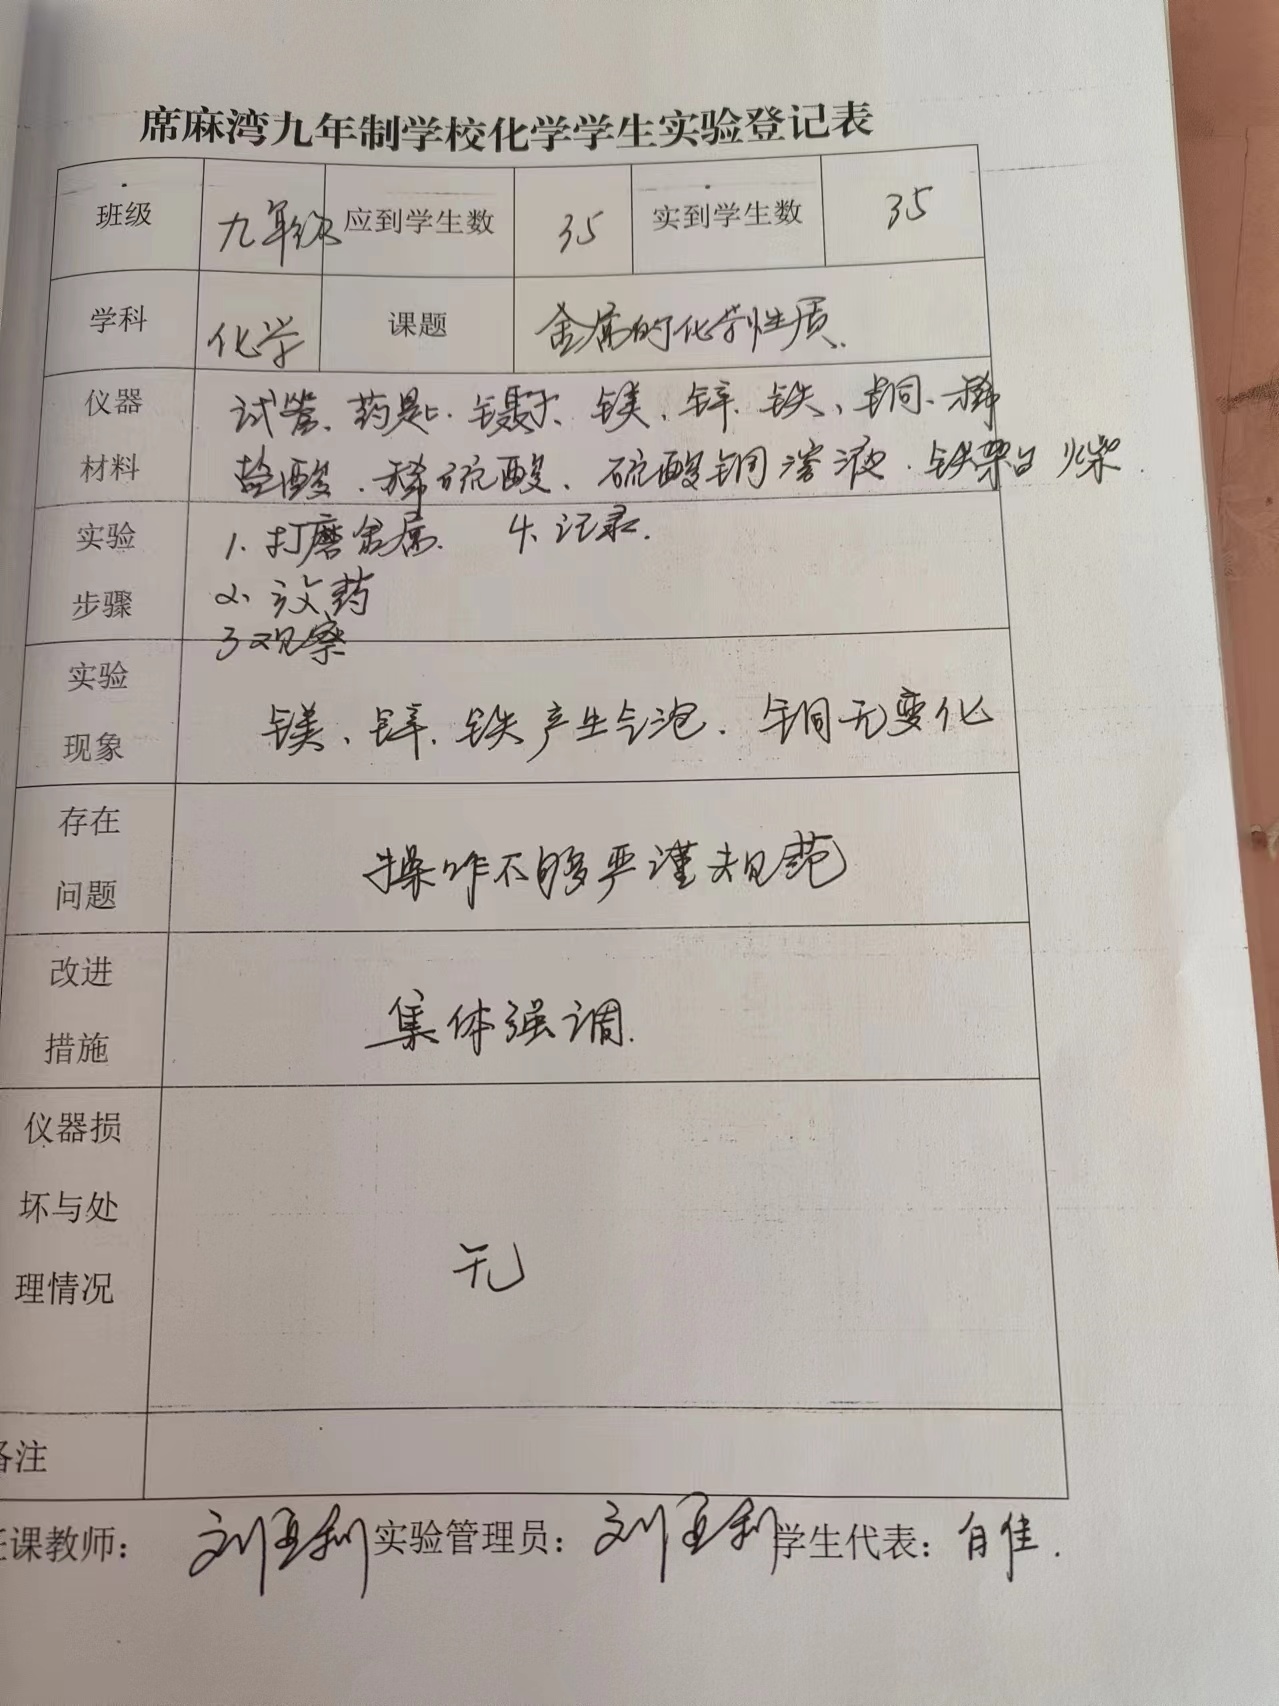 席麻湾九年制学校化学学生实验登记表
班级 九年级 应到学生数 35 实到学生数 35
学科 化学 课题 金属的化学性质.
仪器 试管、药匙、镊子、镁、锌、铁、铜、稀
材料 盐酸、稀硫酸、硫酸铜溶液、铁架台 火柴.
实验 1. 打磨金属. 4. 记录.
步骤 2. 放药
3 观察
实验
镁、锌、铁产生气泡、铜无变化
现象
存在
操作不够严谨规范
问题
改进
集体强调.
措施
仪器损
坏与处
无
理情况
备注
任课教师: 实验管理员: 学生代表: 白佳.